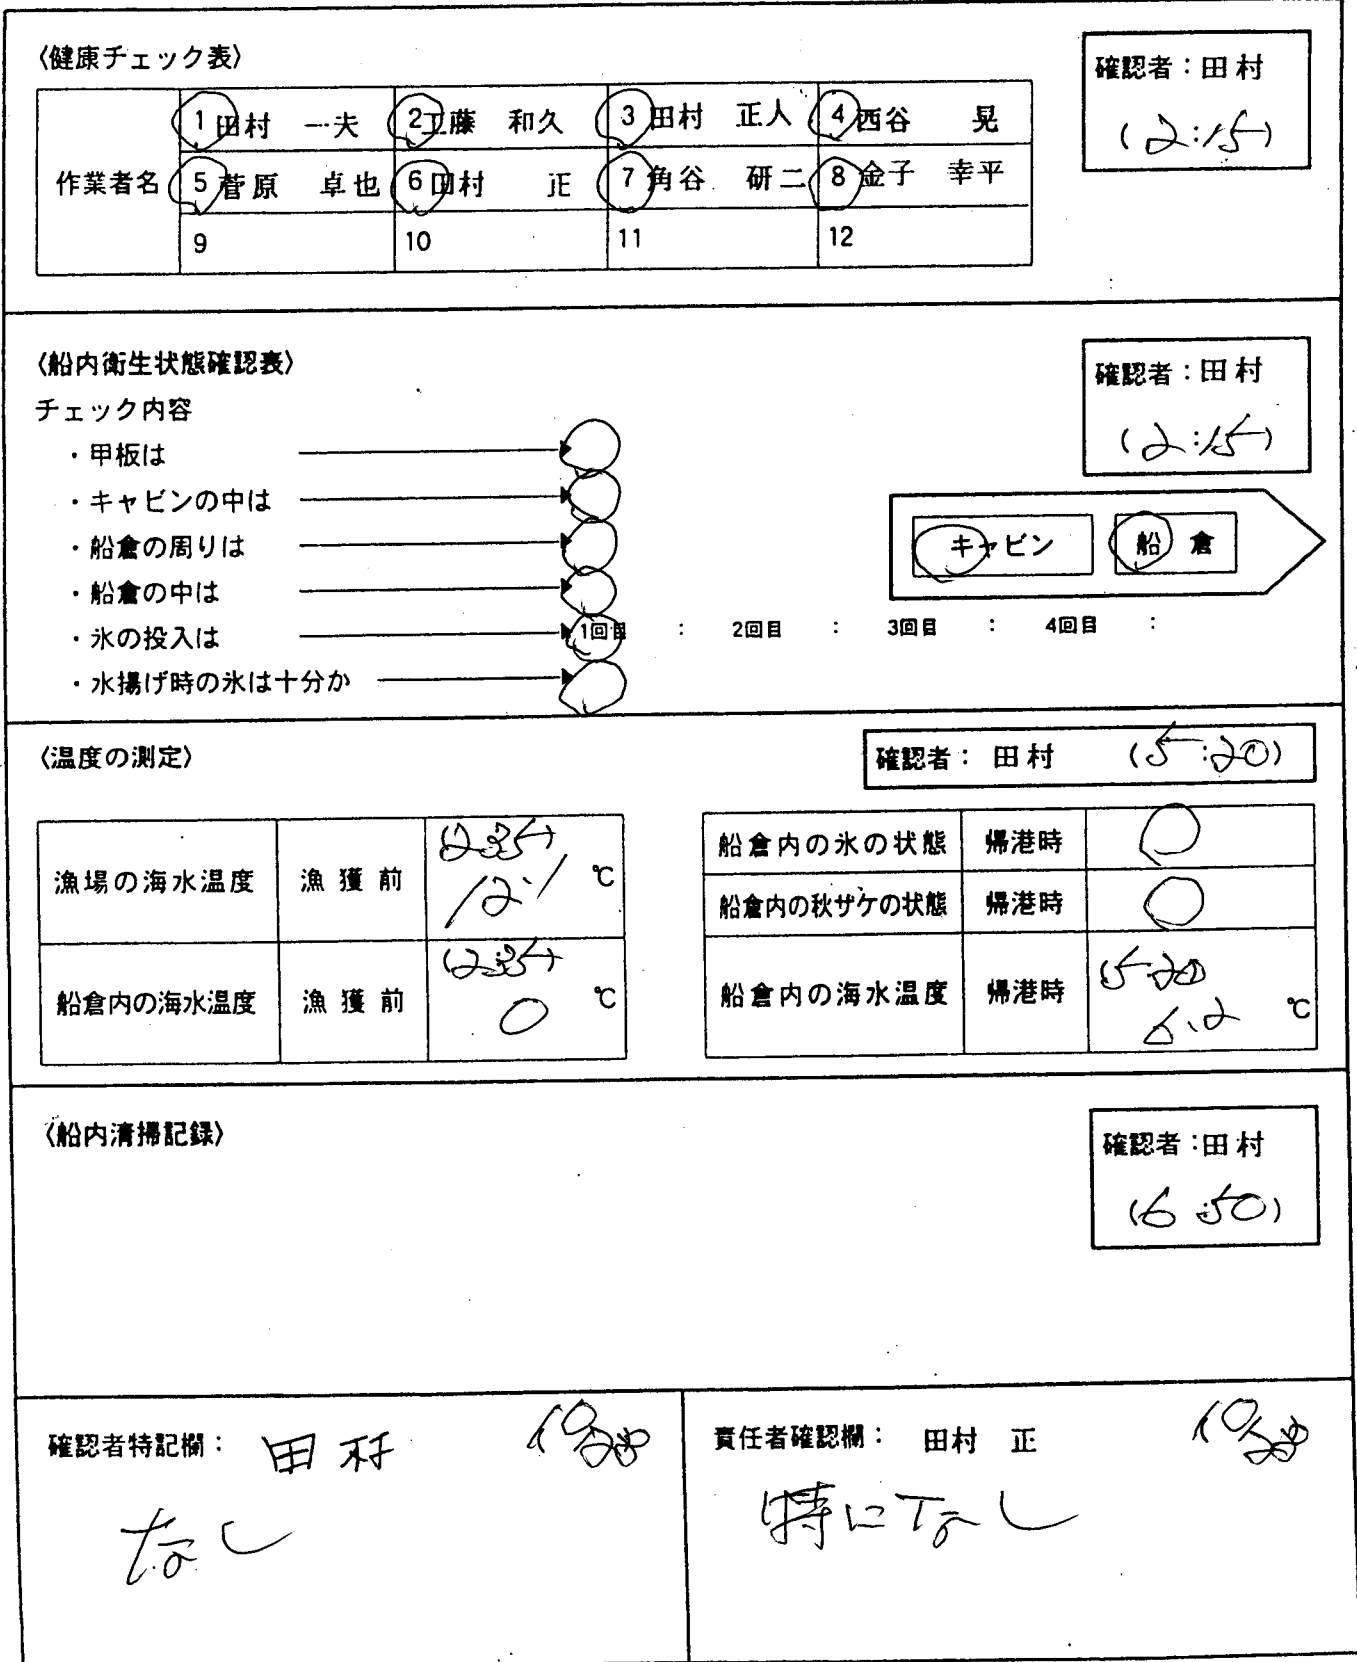 〈健康チェック表〉
確認者：田村
(2:15)
作業者名
1 田村 一夫 2 工藤 和久 3 田村 正人 4 西谷 晃
5 菅原 卓也 6 田村 正 7 角谷 研二 8 金子 幸平
9 10 11 12
〈船内衛生状態確認表〉
確認者：田村
(2:15)
チェック内容
・甲板は
・キャビンの中は
・船倉の周りは
・船倉の中は
・氷の投入は 1回目 : 2回目 : 3回目 : 4回目 :
・水揚げ時の氷は十分か
キャビン 船倉
〈温度の測定〉
確認者： 田村 (5:20)
漁場の海水温度 漁獲前 (2:35) 12.1 ℃
船倉内の海水温度 漁獲前 (2:35) 0 ℃
船倉内の氷の状態 帰港時 ○
船倉内の秋サケの状態 帰港時 ○
船倉内の海水温度 帰港時 5:20 ℃
〈船内清掃記録〉
確認者：田村
(6:50)
確認者特記欄： 田村
なし
責任者確認欄： 田村 正
特になし